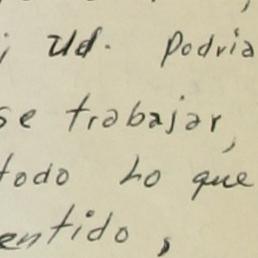 ; Ud. Podria
se trabajar,
todo Lo que
entido,